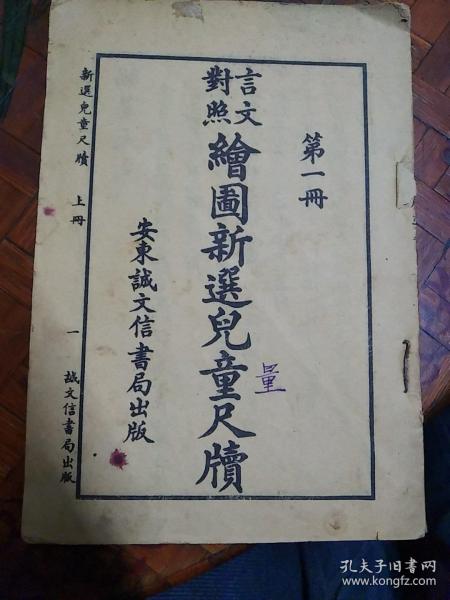 第一冊
言文對照
繪圖新選兒童尺牘
量
安東誠文信書局出版
新選兒童尺牘 上冊 一 誠文信書局出版
孔夫子旧书网
www.kongfz.com